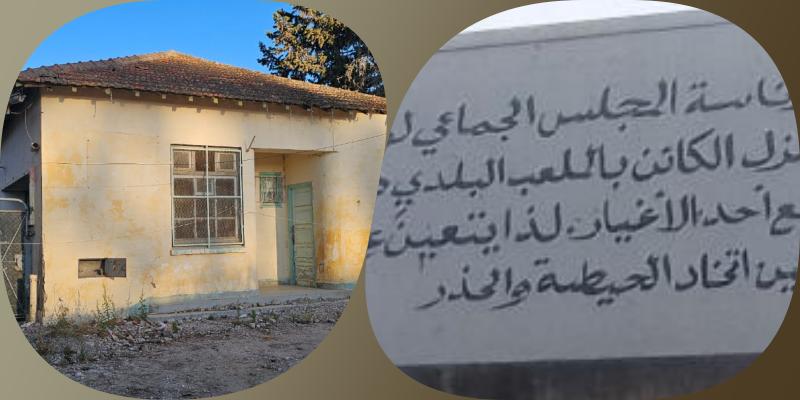 رئاسة المجلس الجماعي
الكائن بالملعب البلدي
مع أحد الأغيار. لذا يتعين
اتخاذ الحيطة والحذر